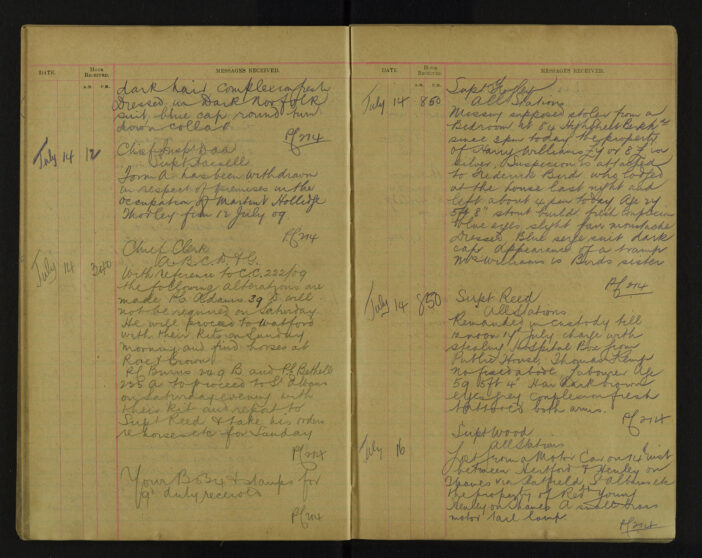 DATE. HOUR RECEIVED. MESSAGES RECEIVED.
A.M. P.M.
dark hair, complexion fresh
Dressed in Dark Norfolk
suit, blue cap round turn
down collar.
July 14 12 Chief Inspr
Supt
Form A has been withdrawn
in respect of premises in the
occupation of Martin &
Thorley from 12 July 09.
July 14 340 Chief Clerk
A. B. C. D. & G.
With reference to C.C. 222/09
the following alterations are
made Pc Adams 39 D will
not be required on Saturday
He will proceed to Watford
with their Kits on Sunday
morning and find horses at
Rose & Crown
Pc Burns 249 B and Pc Bethell
225 A to proceed to St Albans
on Saturday evening with
their kit and report to
Supt Reed & take his orders
re horses etc for Sunday
Your B & stamps for
duty receipts
DATE. HOUR RECEIVED. MESSAGES RECEIVED.
A.M. P.M.
July 14 850 Supt
All Stations
Missing supposed stolen from a
Bedroom at 84 High Street
since 2pm today the property
of Harry Williams, or in
silver. Suspicion is attached
to Frederick Bird who lodged
at the house last night and
left about 4 pm today Age 24
5ft 8" stout build fresh complexion
blue eyes slight fair moustache
Dressed Blue serge suit dark
cap. Appearance of a tramp
Mrs Williams is Birds sister
July 14 850 Supt Reed
All Stations
Remanded in custody till
noon 17 July charge with
stealing Hospital Box from
Public House, Thomas Kemp
no fixed abode, labourer Age
59 5ft 4" Hair dark brown
eyes grey Complexion fresh
both arms.
July 16 Supt Wood
All Stations
Lost from a Motor Car on 14 inst
between Hertford & Henley on
Thames via Hatfield, St Albans etc
the property of Young
Henley on Thames A small brass
motor tail lamp